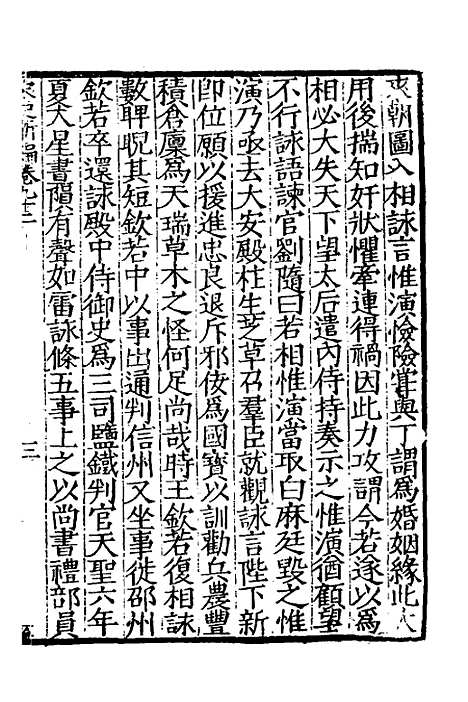 來朝圖入相詠言惟演憸險嘗與丁謂爲婚姻緣此大
用後揣知奸狀懼牽連得禍因此力攻謂今若遂以爲
相必大失天下望太后遣內侍持奏示之惟演猶顧望
不行詠語諫官劉隨曰若相惟演當取白麻廷毀之惟
演乃亟去大安殿柱生芝草召羣臣就觀詠言陛下新
卽位願以援進忠良退斥邪佞爲國寶以訓勸兵農豐
積倉廩爲天瑞草木之怪何足尚哉時王欽若復相詠
數睥睨其短欽若中以事出通判信州又坐事徙邵州
欽若卒還詠殿中侍御史爲三司鹽鐵判官天聖六年
夏大星晝隕有聲如雷詠條五事上之以尚書禮部員
宋史新編卷九十二
三